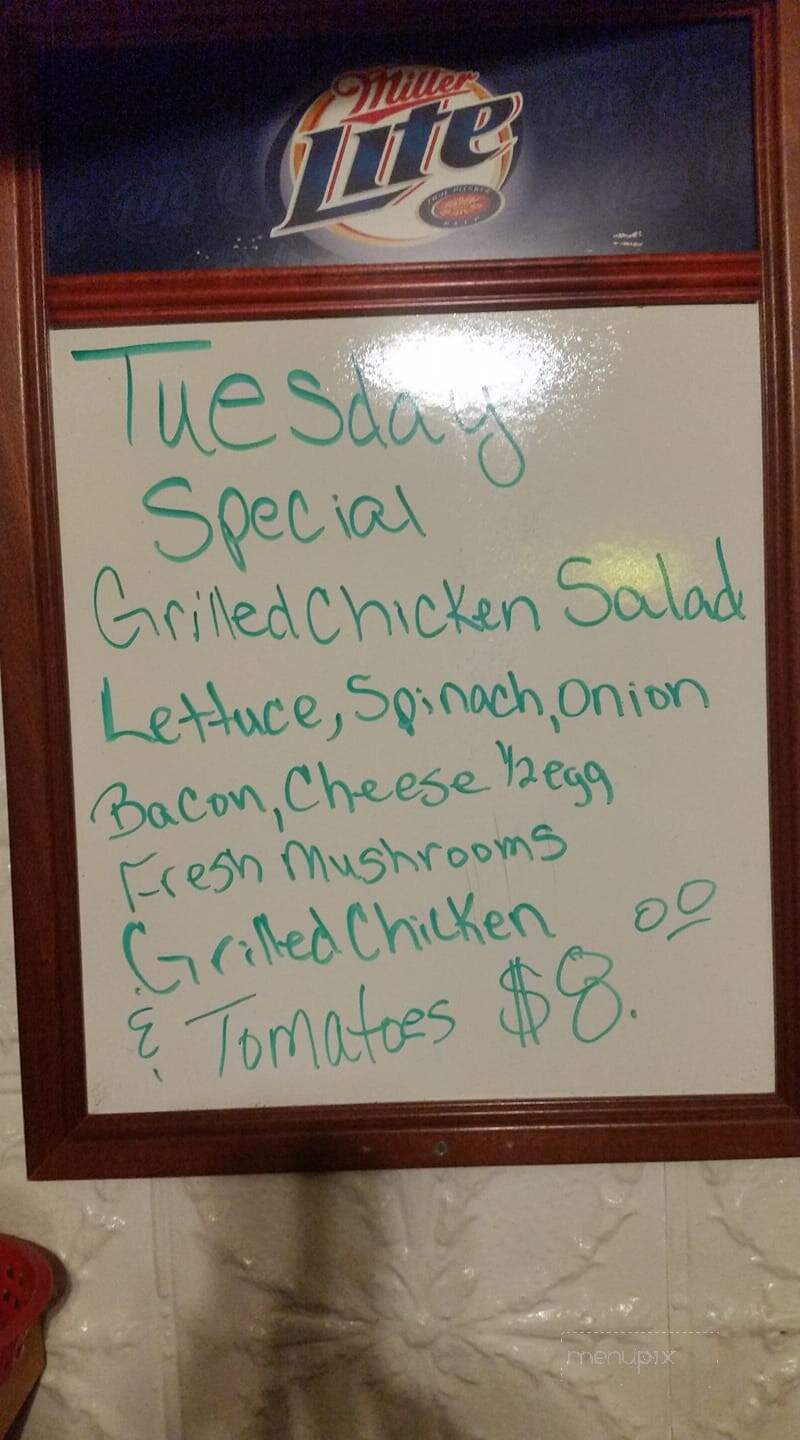 Miller
Lite
Tuesday
Special
Grilled Chicken Salad
Lettuce, Spinach, Onion
Bacon, Cheese 1/2 egg
Fresh Mushrooms
Grilled Chicken
& Tomatoes $8.00
menupix